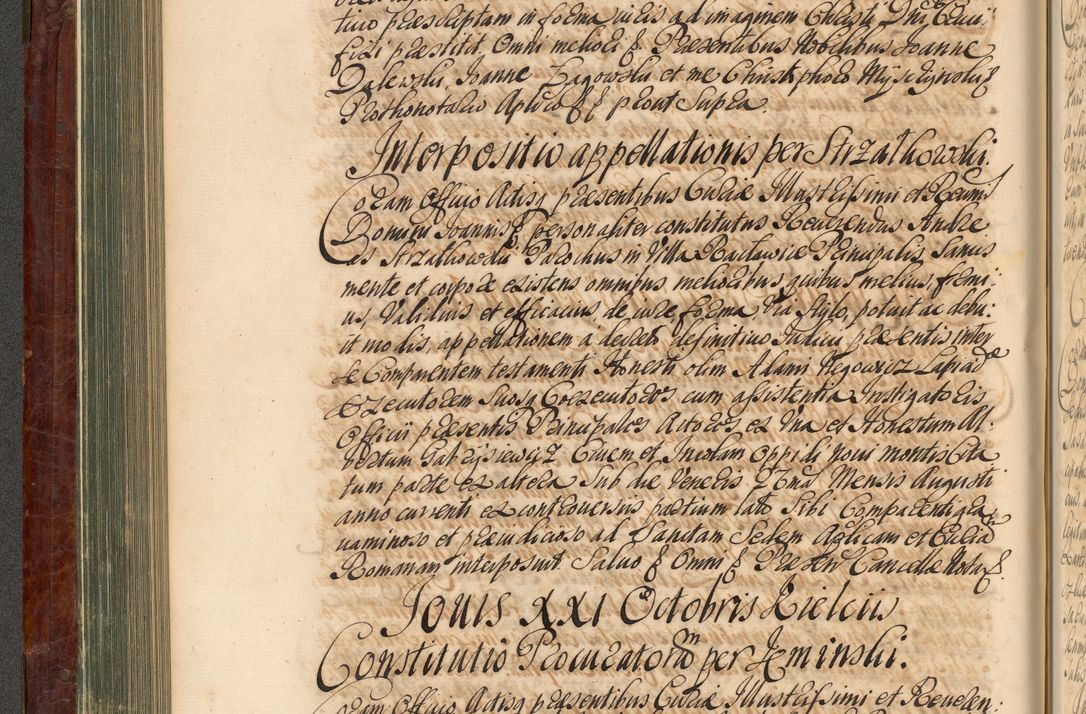 tivo præscriptam in forma juris ad imaginem Christi Dni Cruci:
fixi præstitit. Omni meliori & Præsentibus Nobilibus Joanne
Dalewski, Joanne Zagowski et me Christophoro Myszczynski &
Prothonotario Aplico & & prout supra.
Interpositio appellationis per Strzałkowski.
Coram Officio Actisq præsentibus Curiæ Illustrissimi et Rerum
Domini Joannis & personaliter constitutus Reverendus Andre
as Strzałkowski Parochus in Villa Racławice Principalis, Sanus
mente et corpore existens omnibus melioribus, quibus melius, firmi:
us, Validius et efficacius, de jure forma via stylo, potuit ac debu:
it modis, appellationem a decreto definitivo Judicii præsentis inter
se Comparentem testamenti Honesti olim Adami Regowicz Lapicid
Executorem Suosq Coexecutores, cum assistentia Instigatoris
Officii præsentis Principales Actores ex Una et Honestum Al:
bertum Gabrysiewicz Civem et Incolam Oppidi Novi montis Cita
tum parte ex altera Sub die Veneris 2da Mensis Augusti
anno currenti ex controversiis partium lato Sibi Comparentiq gra
vaminoso et præjudicioso ad Sanctam Sedem Aplicam et Curia
Romanam interposuit Salvo & Omni & Præsen Cancellæ Nota &.
Jovis XXI Octobris Kielciis
Constitutio Procuratorum per Jeminski.
Coram Officio Actisq præsentibus Curiæ Illustrissimi et Reveren: